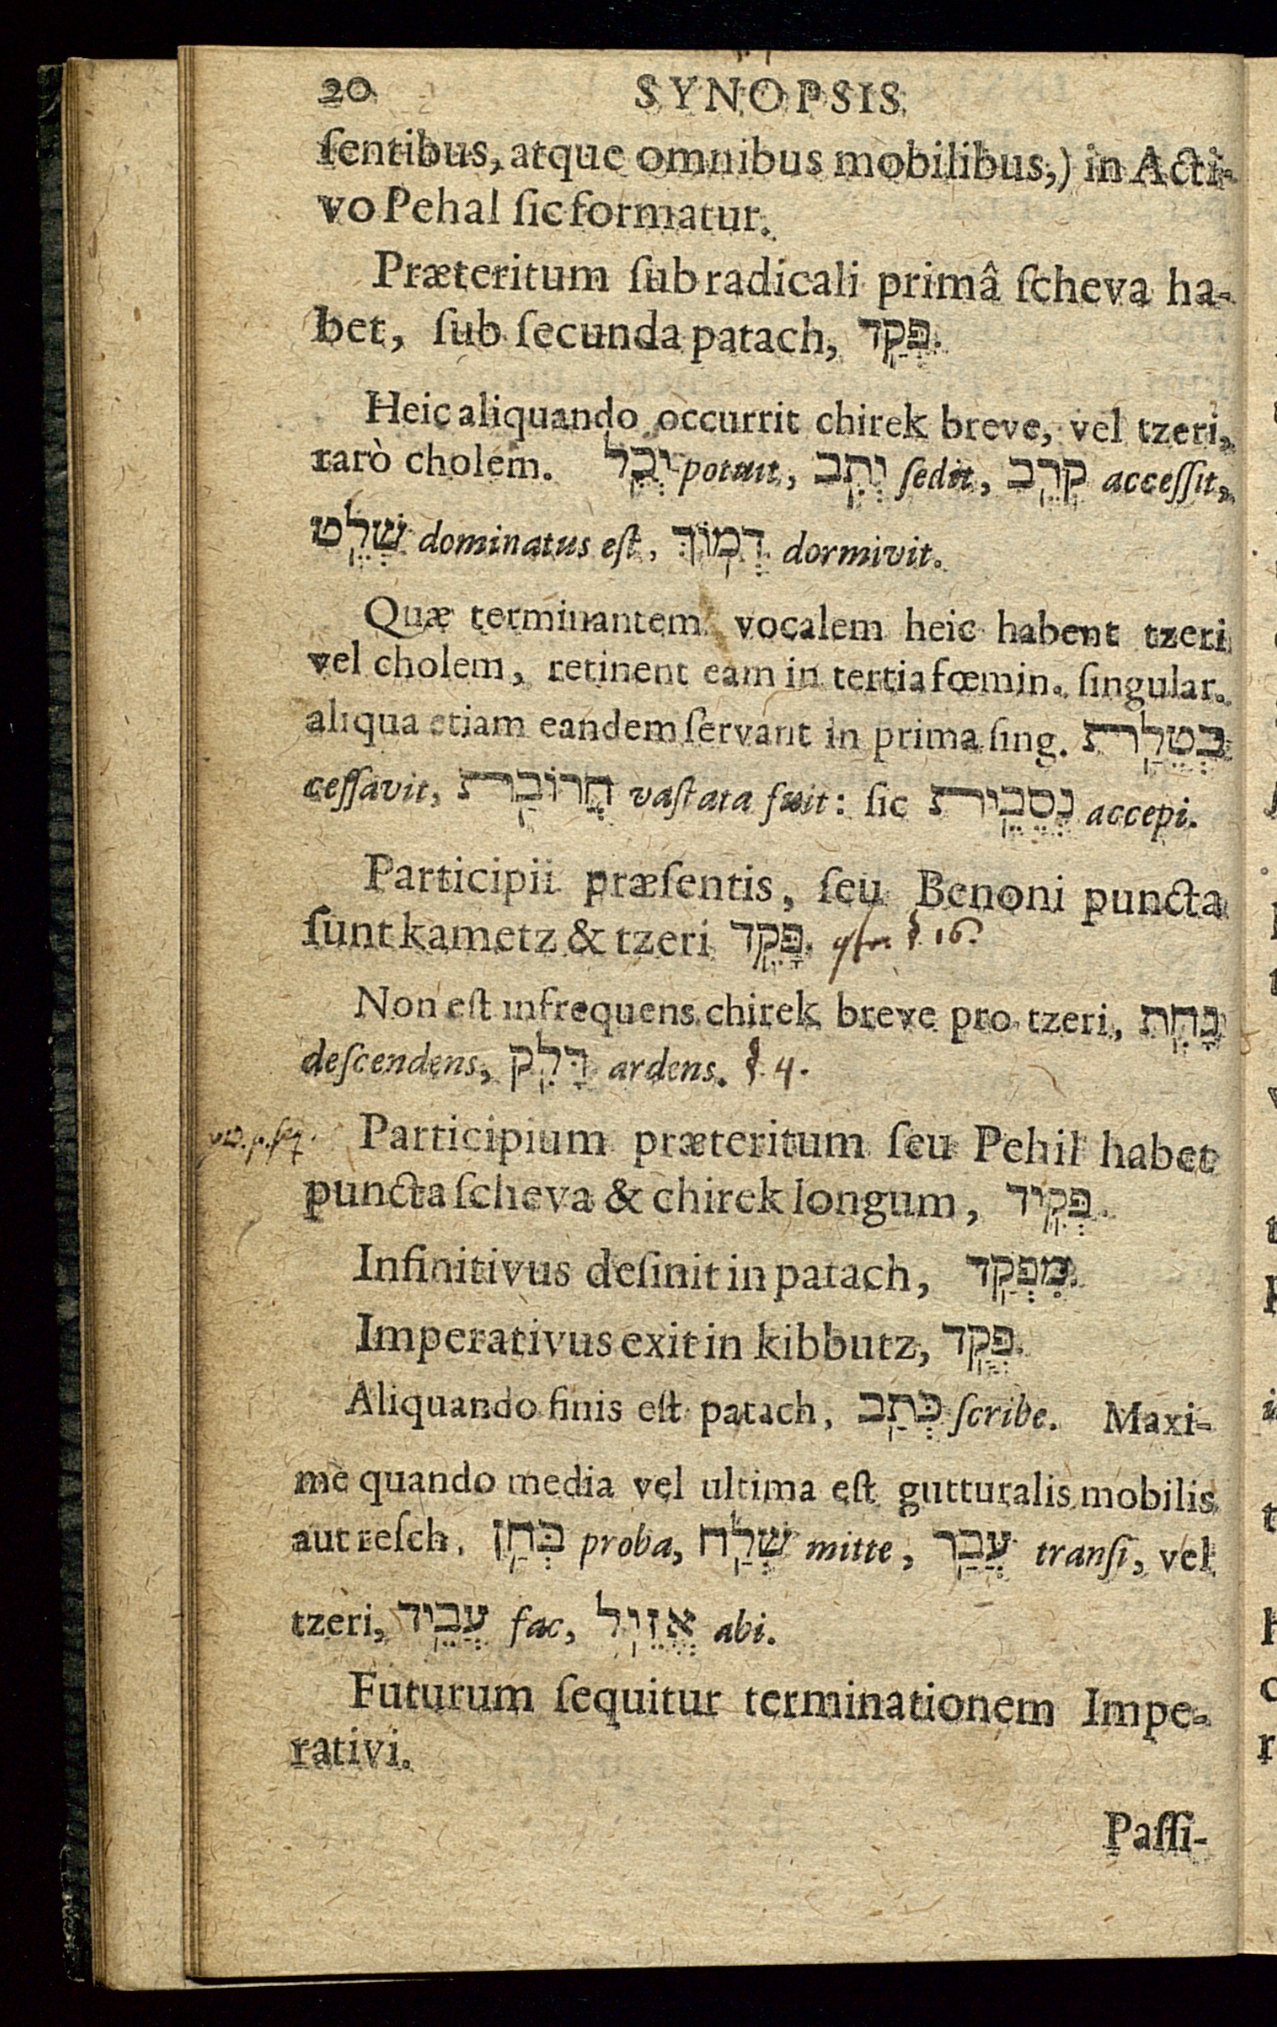 20 SYNOPSIS
ſentibus, atque omnibus mobilibus,) in Acti-
vo Pehal ſic formatur.
Præteritum ſub radicali primâ ſcheva ha-
bet, ſub ſecunda patach, פְּקַד.
Heic aliquando occurrit chirek breve, vel tzeri,
rarò cholem. יְכִל potuit, יְתִב ſedit, קְרֵב acceſſit,
שְׁלֵט dominatus eſt, דְּמוֹךְ dormivit.
Quæ terminantem vocalem heic habent tzeri
vel cholem, retinent eam in tertia fœmin. ſingular.
aliqua etiam eandem ſervant in prima ſing. בְּטֵלַת
ceſſavit, חֲרוֹבַת vaſtata fuit: ſic נְסֵבִית accepi.
Participii præſentis, ſeu Benoni puncta
ſunt kametz & tzeri פָּקֵד. § 16.
Non eſt infrequens chirek breve pro tzeri, נָחִת
deſcendens, דָּלִק ardens. § 4.
Participium præteritum ſeu Pehil habet
puncta ſcheva & chirek longum, פְּקִיד.
Infinitivus deſinit in patach, מִפְקַד.
Imperativus exit in kibbutz, פְּקֻד.
Aliquando finis eſt patach, כְּתַב ſcribe. Maxi-
me quando media vel ultima eſt gutturalis mobilis
aut reſch. בְּחַן proba, שְׁלַח mitte, עֲבַר tranſi, vel
tzeri, עֲבֵיד fac, אֱזֵיל abi.
Futurum ſequitur terminationem Impe-
rativi.
Paſſi-